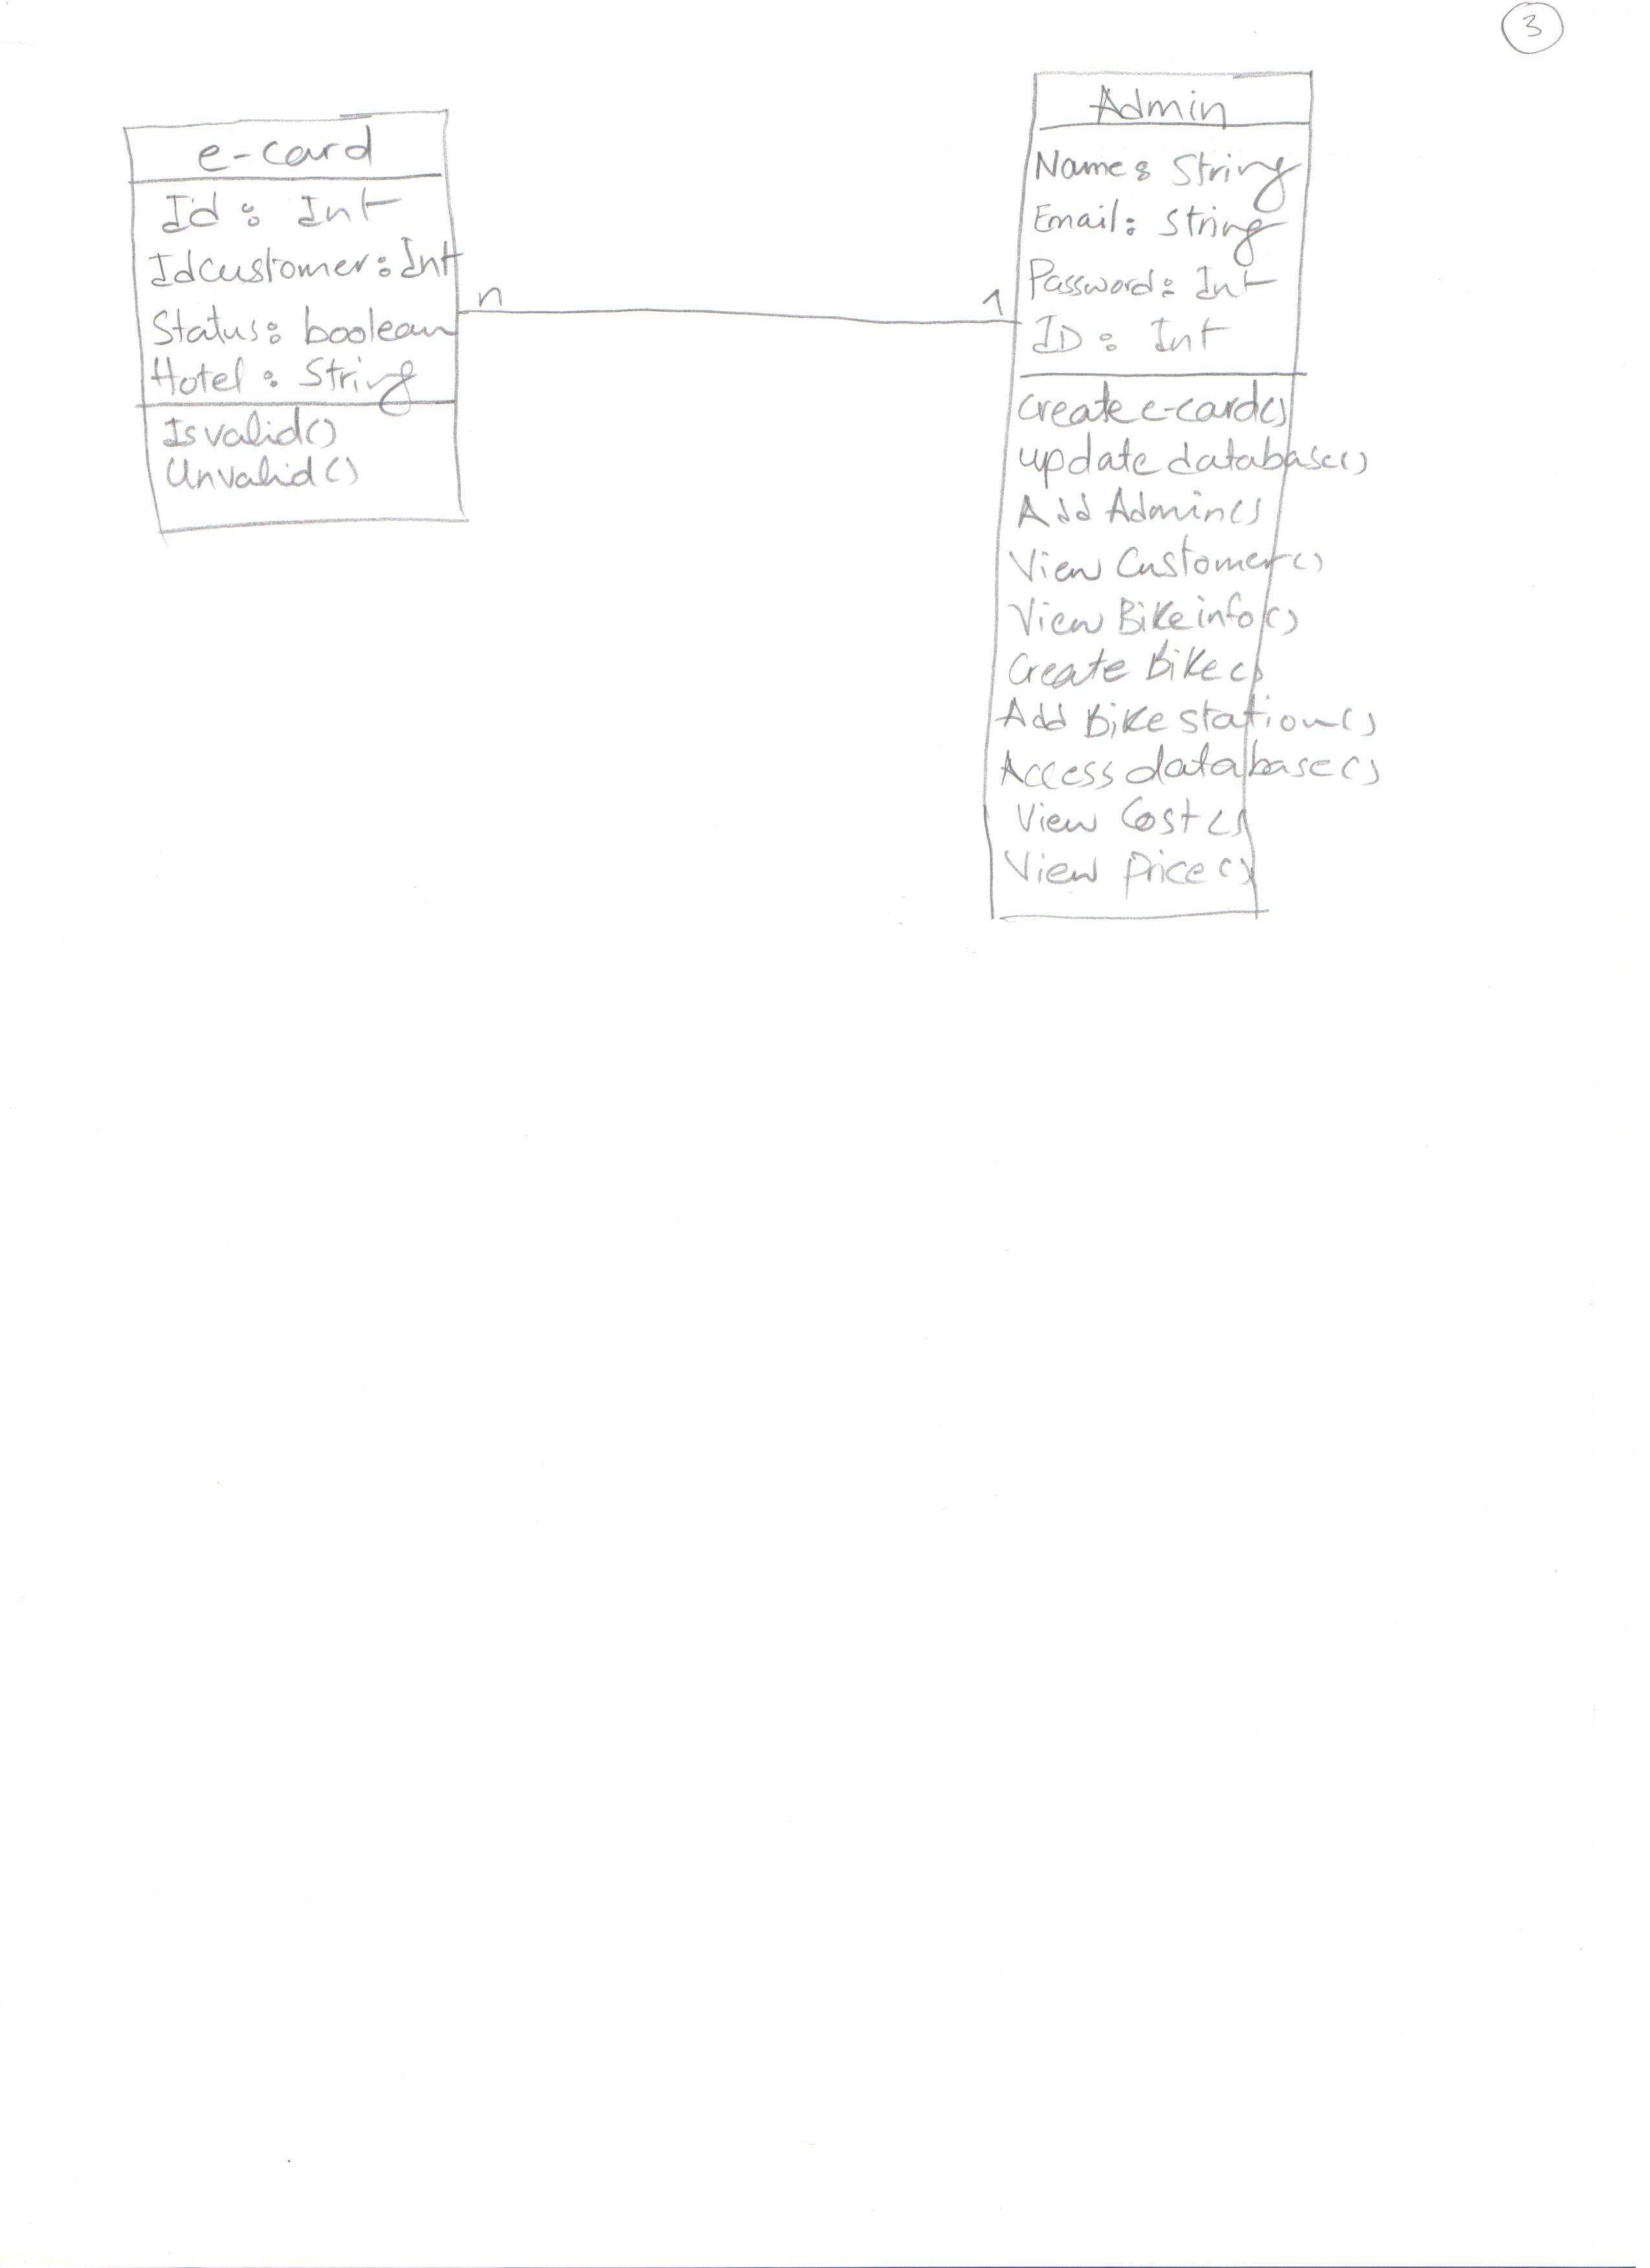 3
e-card
Id : Int
Idcustomer : Int
Status : boolean
Hotel : String
Isvalid()
Unvalid()
n
1
Admin
Name : String
Email : String
Password : Int
ID : Int
Create e-card()
update database()
Add Admin()
View Customer()
View Bike info()
Create Bike()
Add Bike station()
Access database()
View Cost()
View Price()